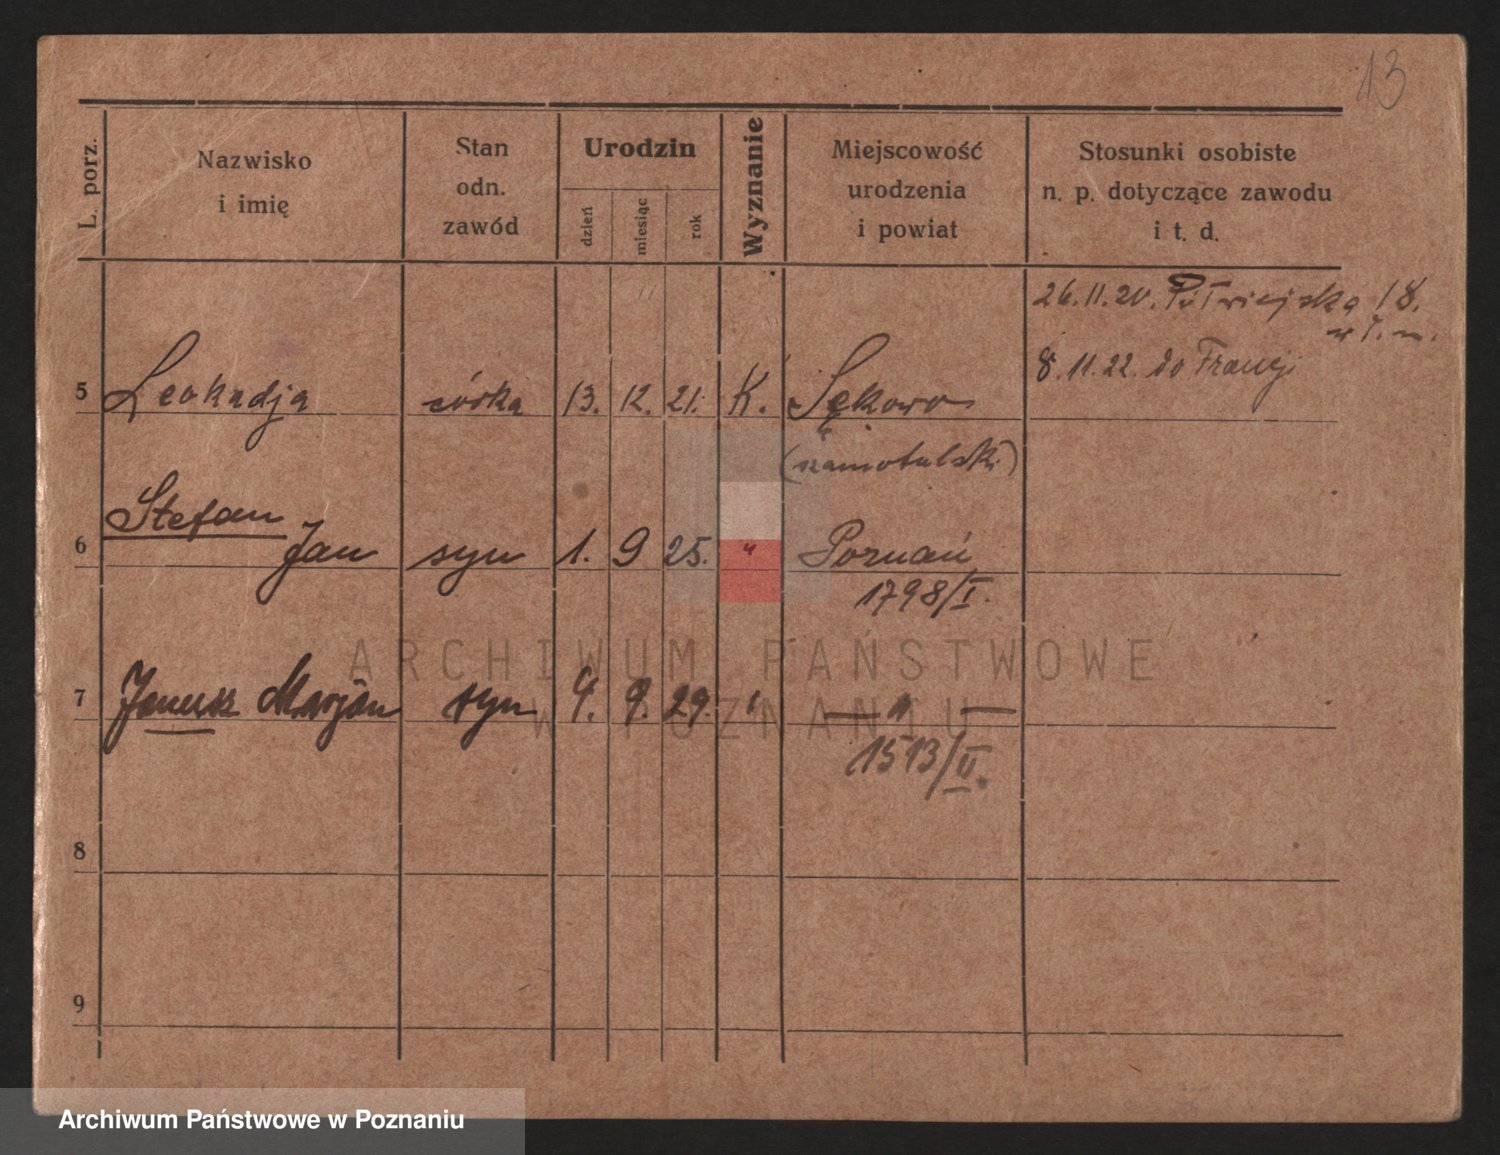 13
L. porz.
Nazwisko
i imię
Stan
odn.
zawód
Urodzin
dzień
miesiąc
rok
Wyznanie
Miejscowość
urodzenia
i powiat
Stosunki osobiste
n. p. dotyczące zawodu
i t. d.
26.11.20. Półwiejska 18.
8.11.22. do Francji
5 Leokadja córka 13. 12. 21. K. Sękowo
(szamotulski)
Stefan
6 Jan syn 1. 9 25. " Poznań
1798/I.
7 Janusz Marjan syn 4. 9. 29. " — " —
1513/II.
8
9
ARCHIWUM PAŃSTWOWE
W POZNANIU
Archiwum Państwowe w Poznaniu